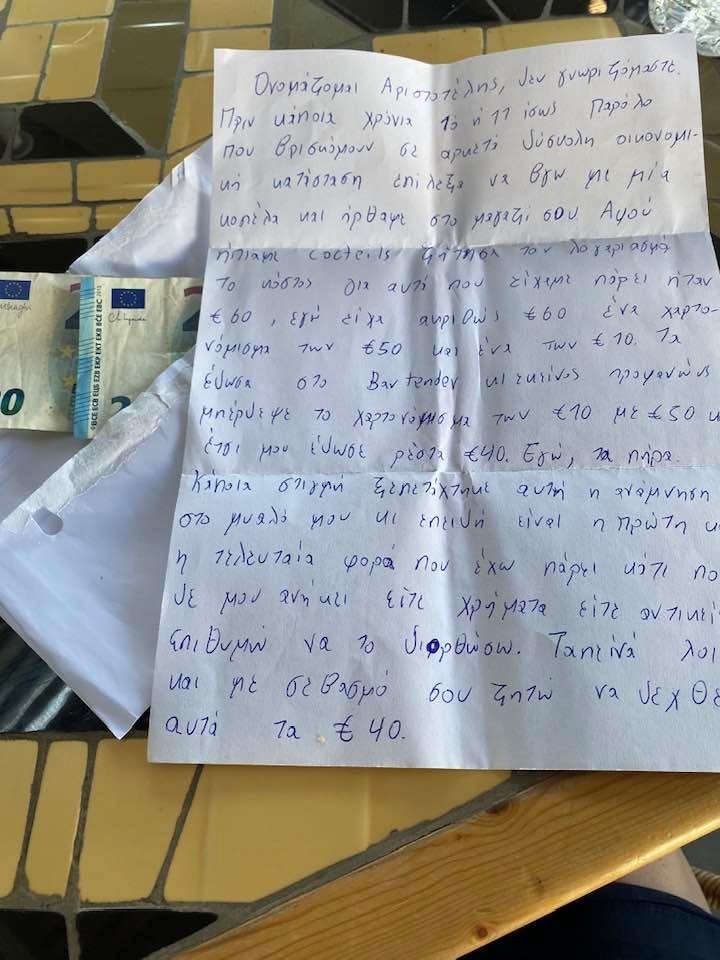 Ονομάζομαι Αριστοτέλης, δεν γνωριζόμαστε.
Πριν κάποια χρόνια 10 ή 11 ίσως Παρόλο
που βρισκόμουν σε αρκετά δύσκολη οικονομι-
κή κατάσταση επέλεξα να βγω με μία
κοπέλα και ήρθαμε στο μαγαζί σου. Αφού
ήπιαμε cocteils ζήτησα τον λογαριασμό
το κόστος για αυτά που είχαμε πάρει ήταν
€60, εγώ είχα ακριβώς €60 ένα χαρτο-
νόμισμα των €50 και ένα των €10. Τα
έδωσα στο Bartender κι εκείνος προφανώς
μπέρδεψε το χαρτονόμισμα των €10 με €50 κ
έτσι μου έδωσε ρέστα €40. Εγώ, τα πήρα.
Κάποια στιγμή ξεπετάχτηκε αυτή η ανάμνηση
στο μυαλό μου κι επειδή είναι η πρώτη κ
η τελευταία φορά που έχω πάρει κάτι πο
δε μου ανήκει είτε χρήματα είτε αντικεί
επιθυμώ να το διορθώσω. Ταπεινά λοι
και με σεβασμό σου ζητώ να δεχθε
αυτά τα €40.
BCE ECB EZB EKP EKT EKB BĊE EBC